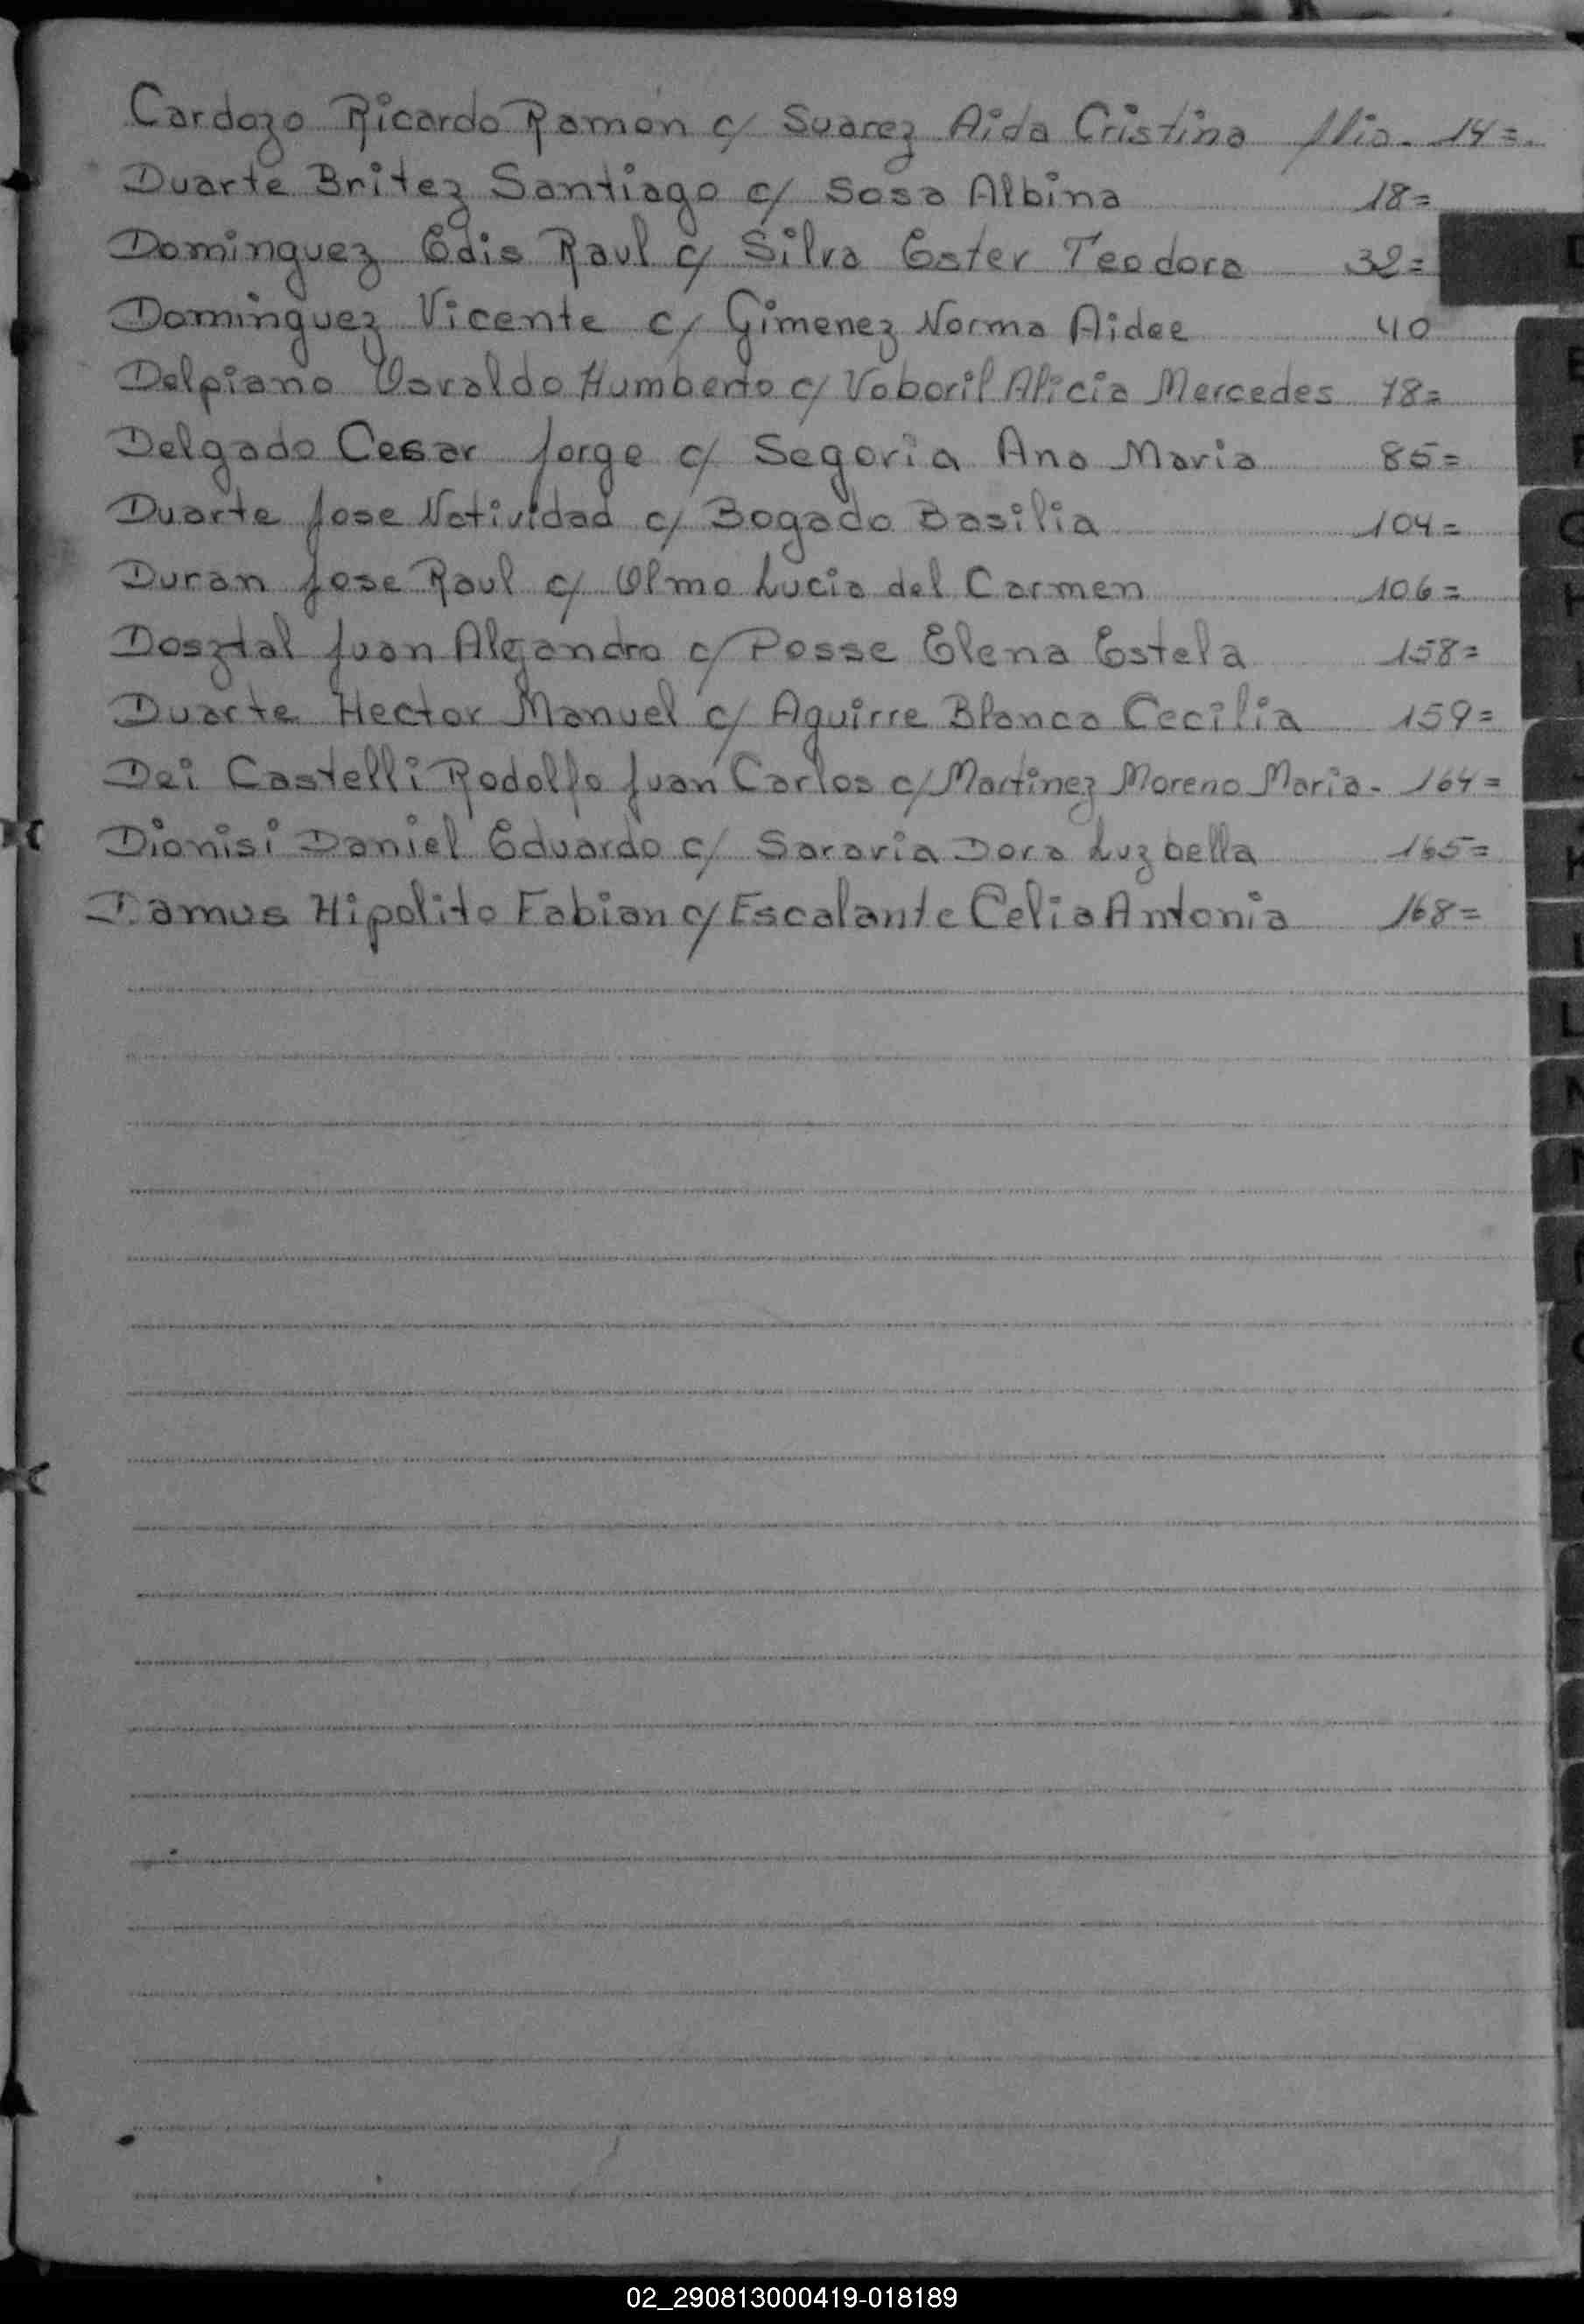 Cardozo Ricardo Ramón c/ Suarez Aida Cristina flio. 14=.
Duarte Britez Santiago c/ Sosa Albina 18=
Dominguez Edis Raul c/ Silva Ester Teodora 32=
Dominguez Vicente c/ Gimenez Norma Aidee 40
Delpiano Osvaldo Humberto c/ Voboril Alicia Mercedes 78=
Delgado Cesar Jorge c/ Segovia Ana Maria 85=
Duarte Jose Natividad c/ Bogado Basilia 104=
Duran Jose Raul c/ Olmo Lucia del Carmen 106=
Dosztal Juan Alejandro c/ Posse Elena Estela 158=
Duarte Hector Manuel c/ Aguirre Blanca Cecilia 159=
Dei Castelli Rodolfo Juan Carlos c/ Martinez Moreno Maria. 164=
Dionisi Daniel Eduardo c/ Saravia Dora Luz bella 165=
Damus Hipolito Fabian c/ Escalante Celia Antonia 168=
D
E
F
G
H
I
J
K
L
LL
N
02_290813000419-018189